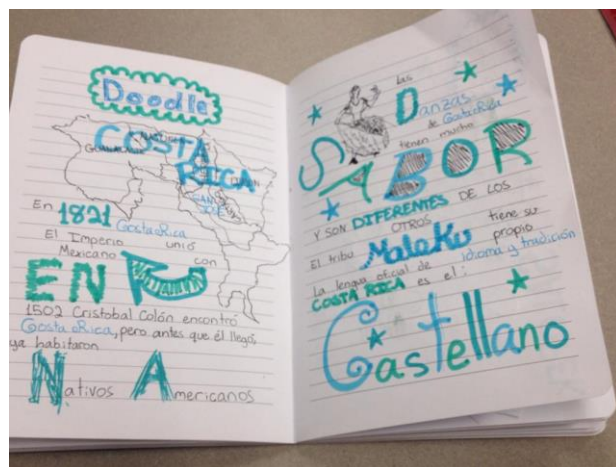 Doodle
COSTA
RICA
SAN
JOSE
En 1821 Costa Rica
El Imperio unió
Mexicano con
EN
1502 Cristobal Colón encontró
Costa Rica, pero antes que él llegó
ya habitaron
Nativos Americanos
Las
Danzas
de Costa Rica
tienen mucha
SABOR
Y SON DIFERENTES DE LOS
OTROS
El tribu Maleku tiene su
propio
idioma y tradición
La lengua oficial de
COSTA RICA es el:
Castellano